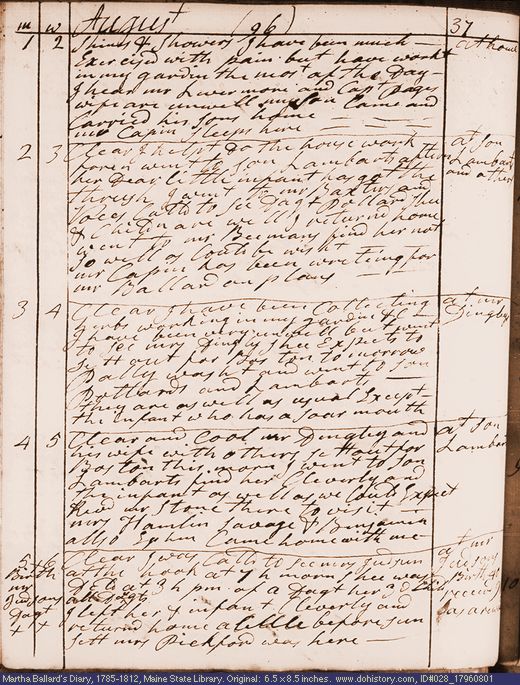 m w August (96) 37
1 2 Shines & Showers I have been much at home
Exercised with pain but have workt
in my gardin the most of the Day
I hear mr Livermore and Capt Pages
wife are unwell my son Came and
Carried his sons home
mr Capin sleeps here
2 3 Clear I helpt do the house work at son
foren went to son Lambarts aftern Lambarts
her Dear little infant has got the and others
thrush I went to mr Baxters and
Joles Calld to see Dagt Pollard shee
& Childn are well I returnd home
went to mr Beemans find her not
so well as Could be wisht
mr Capin has been writeing for
mr Ballard on plans
3 4 Clear I have been Collecting at mr
herbs working in my gardin &C Dingleys
I have been very unwell but went
to see mrs Dingly shee Expects to
sett out for Boston tomorrow
Dally washt and went to son
Pollards and Lambarts
they are as well as usual Except
the infant who has a soar mouth
4 5 Clear and Cool mr Dingley and at son
his wife with others sett out for Lambarts
Boston this morn I went to son
Lambarts find her Cleverly and
the infant as well as we Could Expect
Revd mr Stone there to visit
mrs Hamlin Savage & Benjamin
allso Ephm Came home with me
5 6 Clear I was Calld to see mrs Judson at mr
Birth at the hook at 7 h morn shee was Judsons
mr DLd at 3 h pm of a Dagt her 3d Child Birth 4th
Judsons all Dagts receivd
Dagt I left her & infant Cleverly and
+ + returnd home a little before sun
sett mrs Pickford was here
Martha Ballard's Diary, 1785-1812, Maine State Library. Original: 6.5 x 8.5 inches. www.dohistory.com, ID#028_17960801